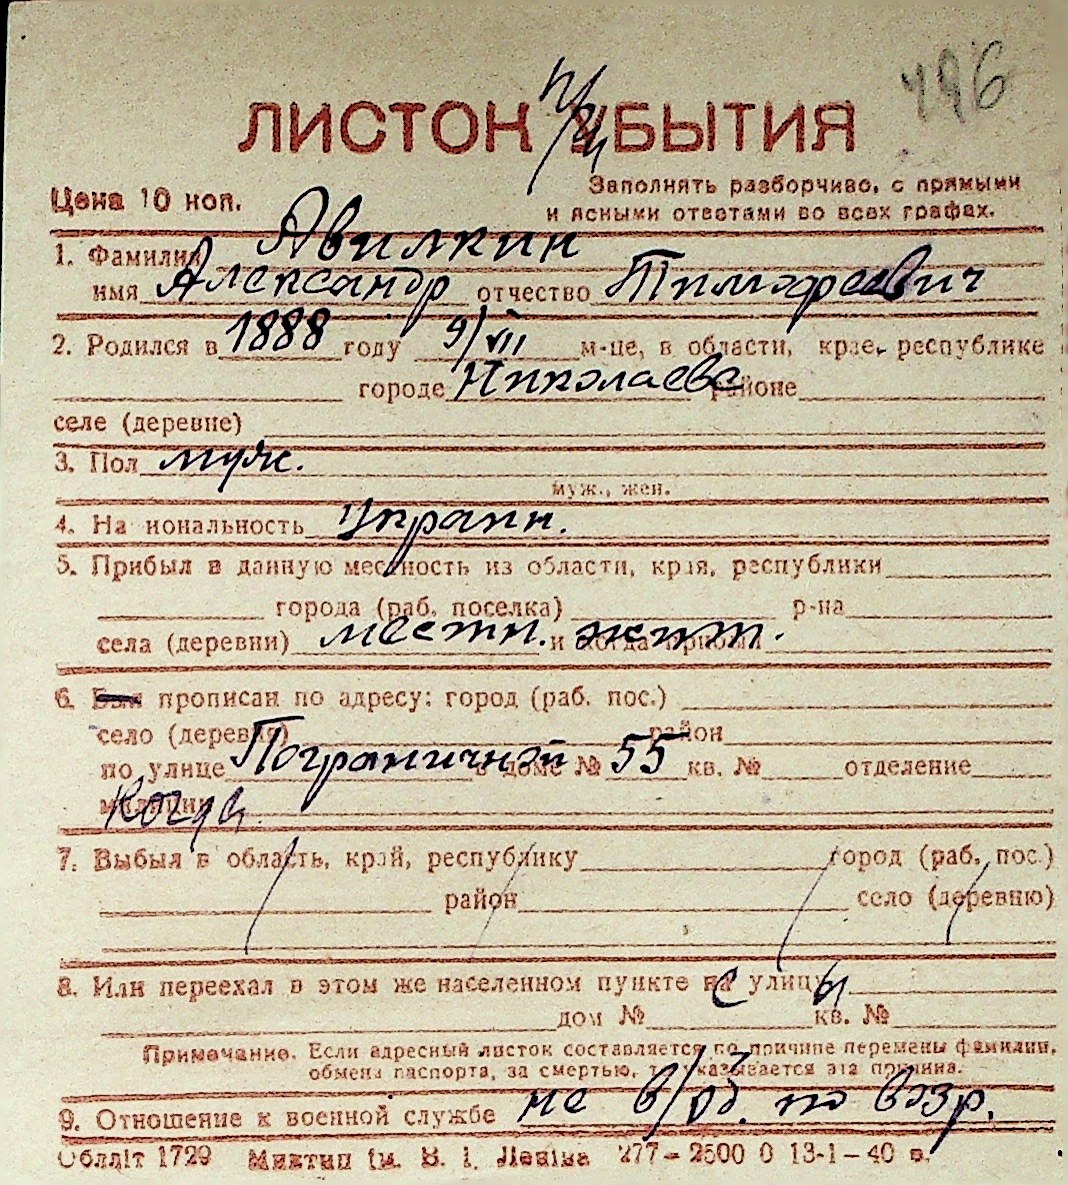 496
ЛИСТОК УБЫТИЯ
Цена 10 коп.
Заполнять разборчиво, с прямыми
и ясными ответами во всех графах.
1. Фамилия Авилкин
имя Александр отчество Тимофеевич
2. Родился в 1888 году 9/VII м-це, в области, крае, республике
городе Николаеве районе
селе (деревне)
3. Пол муж.
муж., жен.
4. На иональность Украин.
5. Прибыл в данную местность из области, края, республики
города (раб. поселка) р-на
села (деревни) местн. и когда прибыл жит.
6. Был прописан по адресу: город (раб. пос.)
село (деревня) район
по улице Пограничной в доме № 55 кв. № отделение
милиции Когда
7. Выбыл в область, край, республику город (раб. пос.)
район село (деревню)
8. Или переехал в этом же населенном пункте на с улицу ы
дом № кв. №
Примечание. Если адресный листок составляется по причине перемены фамилии,
обмена паспорта, за смертью, то указывается эта причина.
9. Отношение к военной службе не в/об. по возр.
Обллiт 1729 Миктип iм. В. I. Ленiна 277-2500 0 13-1-40 в.